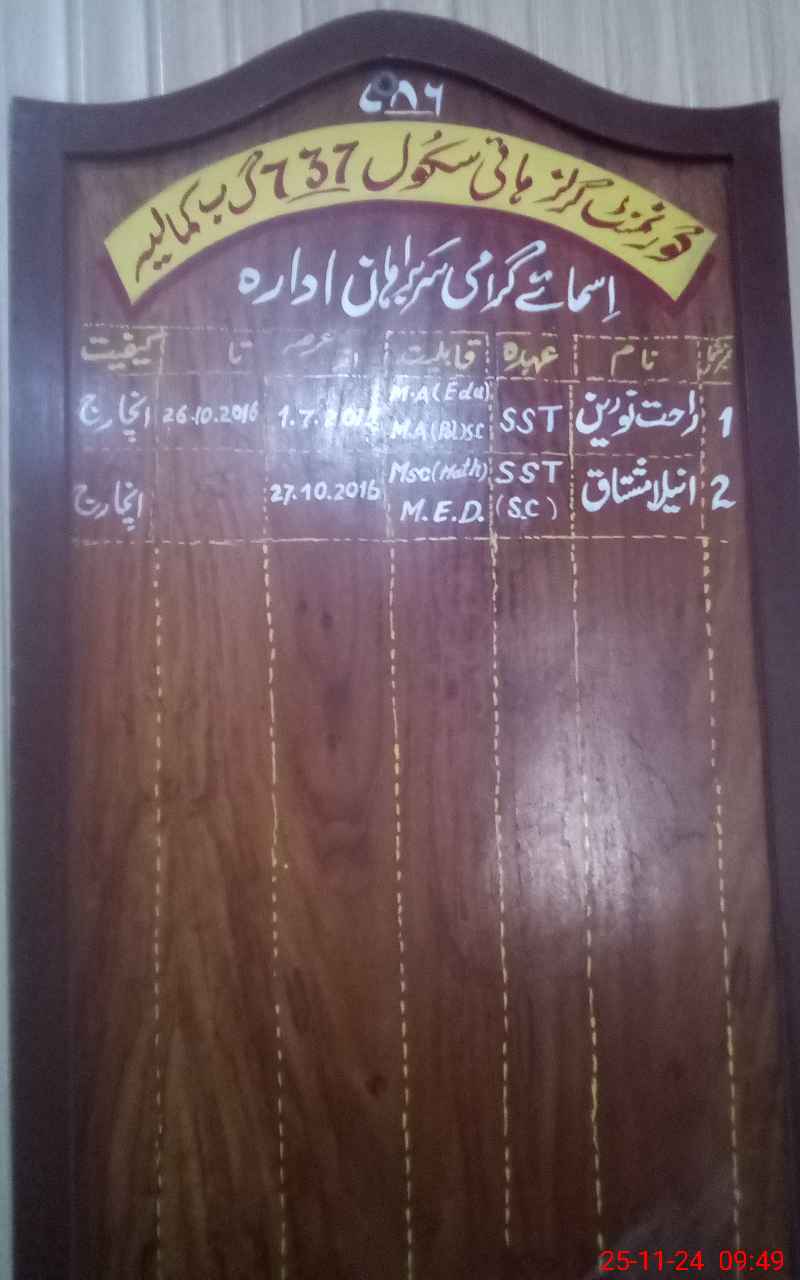 ۷۸۶
گورنمنٹ گرلز ہائی سکول 737 گ ب کمالیہ
اِسمائے گرامی سَربراہان ادارہ
نام عہدہ قابلیت عرصہ از تا کیفیت
1 راحت نورین SST M.A(Edu) 1.7. 26.10.2016 انچارج
M.A(Pol)SC
2 انیلا مشتاق SST Msc(Math) 27.10.2016 انچارج
(S.C) M.E.D.
25-11-24 09:49